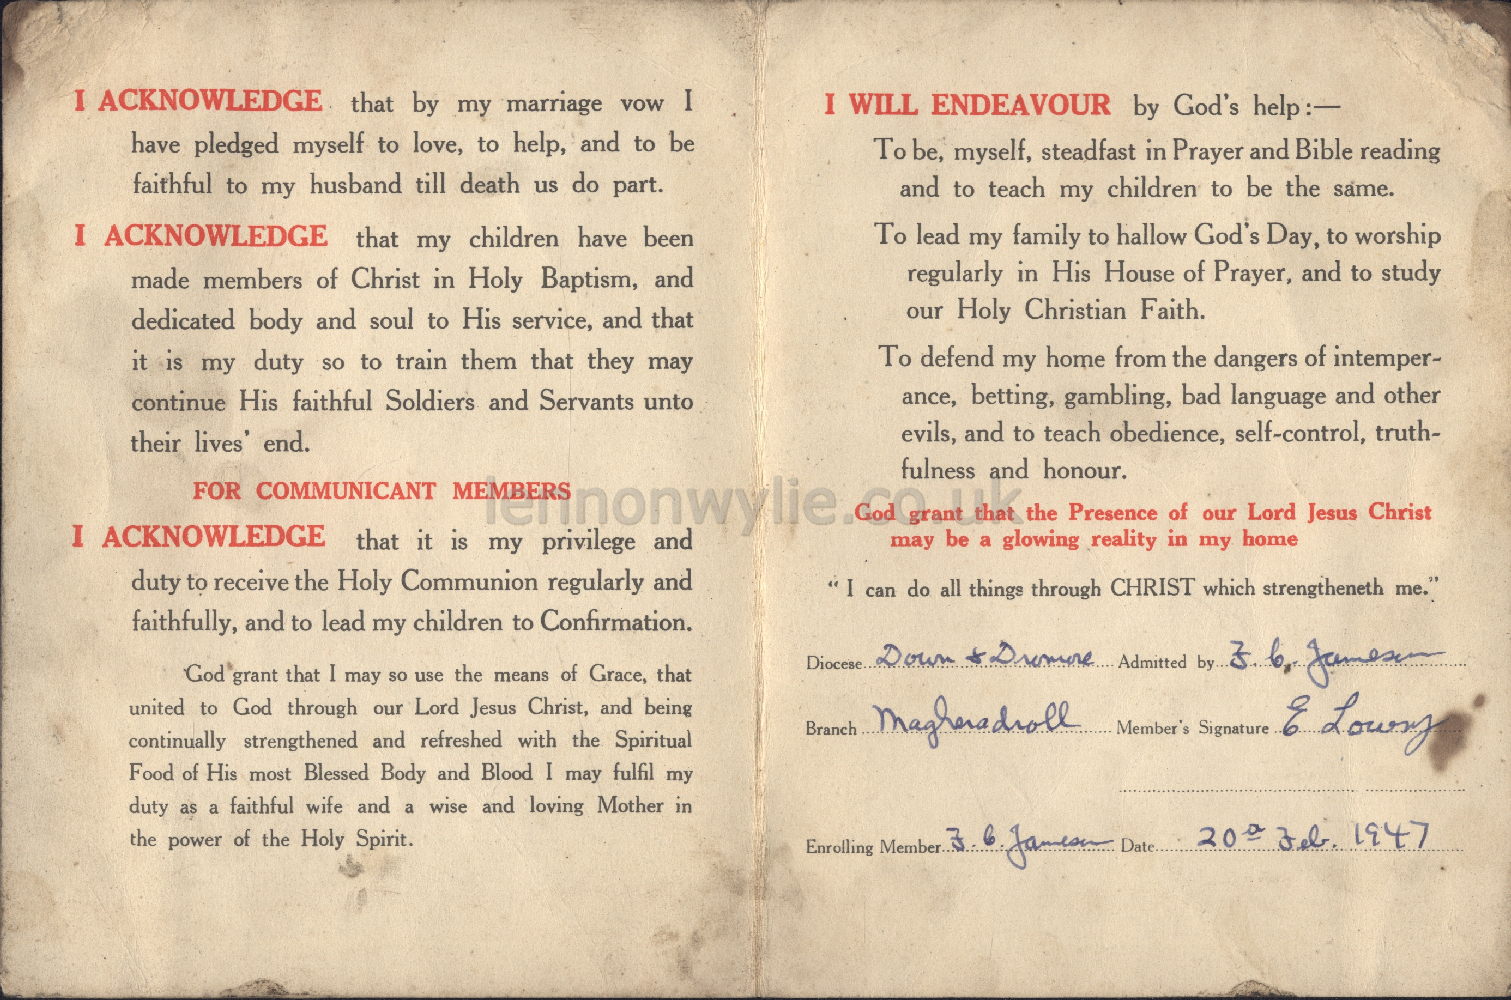 I ACKNOWLEDGE that by my marriage vow I
have pledged myself to love, to help, and to be
faithful to my husband till death us do part.
I ACKNOWLEDGE that my children have been
made members of Christ in Holy Baptism, and
dedicated body and soul to His service, and that
it is my duty so to train them that they may
continue His faithful Soldiers and Servants unto
their lives' end.
FOR COMMUNICANT MEMBERS
I ACKNOWLEDGE that it is my privilege and
duty to receive the Holy Communion regularly and
faithfully, and to lead my children to Confirmation.
God grant that I may so use the means of Grace, that
united to God through our Lord Jesus Christ, and being
continually strengthened and refreshed with the Spiritual
Food of His most Blessed Body and Blood I may fulfil my
duty as a faithful wife and a wise and loving Mother in
the power of the Holy Spirit.
I WILL ENDEAVOUR by God's help :—
To be, myself, steadfast in Prayer and Bible reading
and to teach my children to be the same.
To lead my family to hallow God's Day, to worship
regularly in His House of Prayer, and to study
our Holy Christian Faith.
To defend my home from the dangers of intemper-
ance, betting, gambling, bad language and other
evils, and to teach obedience, self-control, truth-
fulness and honour.
God grant that the Presence of our Lord Jesus Christ
may be a glowing reality in my home
"I can do all things through CHRIST which strengtheneth me."
Diocese Down & Dromore Admitted by F. C. Jameson
Branch Magheradroll Member's Signature E Lowry
Enrolling Member F. C. Jameson Date 20th Feb. 1947
lennonwylie.co.uk